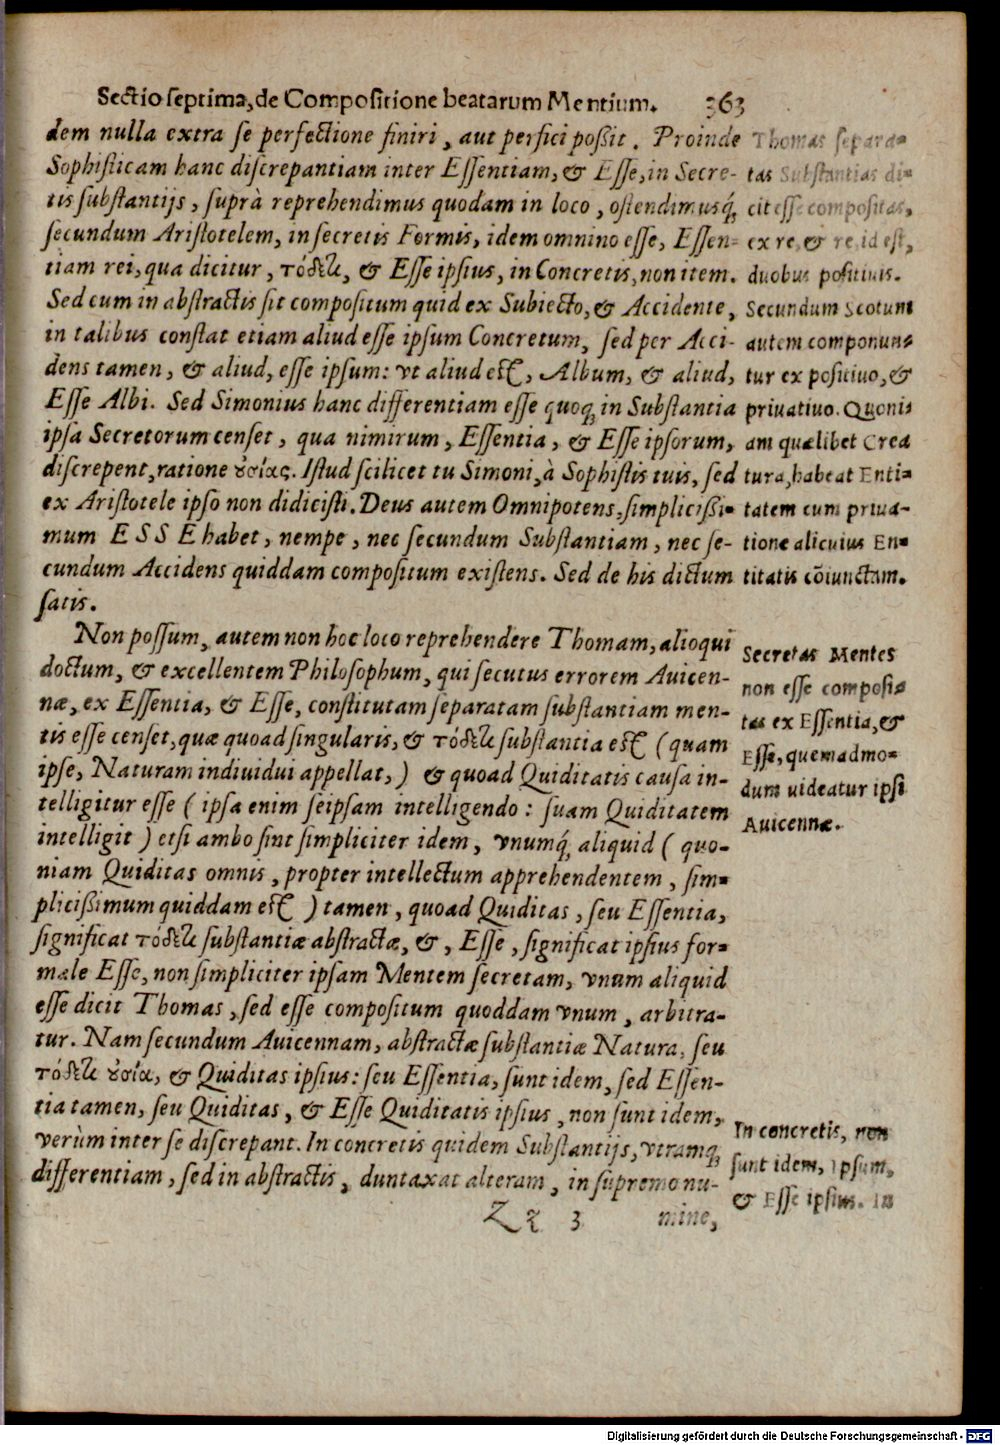 Sectio septima, de Compositione beatarum Mentium. 363
dem nulla extra se perfectione finiri, aut perfici poßit. Proinde
Sophisticam hanc discrepantiam inter Essentiam, & Esse, in Secre-
tis substantijs, suprà reprehendimus quodam in loco, ostendimusq́;
secundum Aristotelem, in secretis Formis, idem omnino esse, Essen-
tiam rei, qua dicitur, τόδετι, & Esse ipsius, in Concretis, non item.
Sed cum in abstractis sit compositum quid ex Subiecto, & Accidente,
in talibus constat etiam aliud esse ipsum Concretum, sed per Acci-
dens tamen, & aliud, esse ipsum: vt aliud est, Album, & aliud,
Esse Albi. Sed Simonius hanc differentiam esse quoq; in Substantia
ipsa Secretorum censet, qua nimirum, Essentia, & Esse ipsorum,
discrepent, ratione ȣ̓σίας. Istud scilicet tu Simoni, à Sophistis tuis, sed
ex Aristotele ipso non didicisti. Deus autem Omnipotens, simplicißi-
mum ESSE habet, nempe, nec secundum Substantiam, nec se-
cundum Accidens quiddam compositum existens. Sed de his dictum
satis.
Non possum, autem non hoc loco reprehendere Thomam, alioqui
doctum, & excellentem Philosophum, qui secutus errorem Auicen-
næ, ex Essentia, & Esse, constitutam separatam substantiam men-
tis esse censet, quæ quoad singularis, & τόδετι substantia est (quam
ipse, Naturam indiuidui appellat,) & quoad Quiditatis causa in-
telligitur esse (ipsa enim seipsam intelligendo: suam Quiditatem
intelligit) etsi ambo sint simpliciter idem, vnumq́; aliquid (quo-
niam Quiditas omnis, propter intellectum apprehendentem, sim-
plicißimum quiddam est) tamen, quoad Quiditas, seu Essentia,
significat τόδετι substantiæ abstractæ, &, Esse, significat ipsius for-
male Esse, non simpliciter ipsam Mentem secretam, vnum aliquid
esse dicit Thomas, sed esse compositum quoddam vnum, arbitra-
tur. Nam secundum Auicennam, abstractæ substantiæ Natura, seu
τόδετι ȣ̓σία, & Quiditas ipsius: seu Essentia, sunt idem, sed Essen-
tia tamen, seu Quiditas, & Esse Quiditatis ipsius, non sunt idem,
verùm inter se discrepant. In concretis quidem Substantijs, vtramq;
differentiam, sed in abstractis, duntaxat alteram, in supremo nu-
Zz 3 mine,
Thomas separa-
tas Substantias di-
cit esse compositas,
ex re, & re, id est,
duobus positiuis.
Secundum Scotum
autem componun-
tur ex positiuo, &
priuatiuo. Quoni
am quælibet Crea
tura, habeat Enti-
tatem cum priua-
tione alicuius En-
titatis cōiunctam.
Secretas Mentes
non esse composi-
tas ex Essentia, &
Esse, quemadmo-
dum uideatur ipsi
Auicennæ.
In concretis, non
sunt idem, ipsum,
& Esse ipsius. In
Digitalisierung gefördert durch die Deutsche Forschungsgemeinschaft - DFG